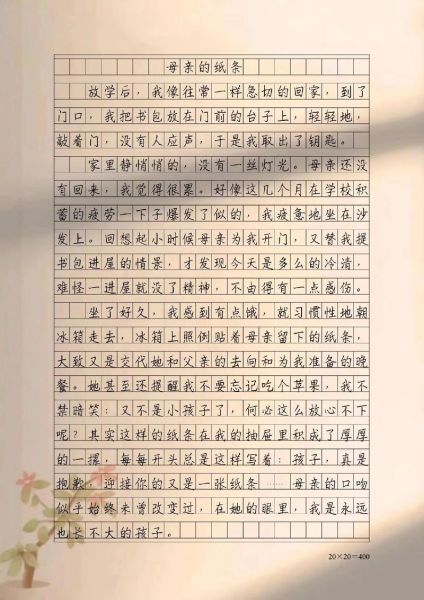 母亲的纸条
放学后，我像往常一样急切的回家，到了
门口，我把书包放在门前的台子上，轻轻地，
敲着门，没有人应声，于是我取出了钥匙。
家里静悄悄的，没有一丝灯光。母亲还没
有回来，我觉得很累。好像这几个月在学校积
蓄的疲劳一下子爆发了似的，我疲惫地坐在沙
发上。回想起小时候母亲为我开门，又替我提
书包进屋的情景，才发现今天是多么的冷清，
难怪一进屋就没了精神，不由得有一点感伤。
坐了好久，我感到有点饿，就习惯性地朝
冰箱走去，冰箱上照例贴着母亲留下的纸条，
大致又是交代她和父亲的去向和为我准备的晚
餐。她甚至还提醒我不要忘记吃个苹果，我不
禁暗笑：又不是小孩子了，何必这么放心不下
呢？其实这样的纸条在我的抽屉里积成了厚厚
的一摞，每每开头总是这样写着：孩子，真是
抱歉，迎接你的又是一张纸条……母亲的口吻
似乎始终未曾改变过，在她的眼里，我是永远
也长不大的孩子。
20×20=400